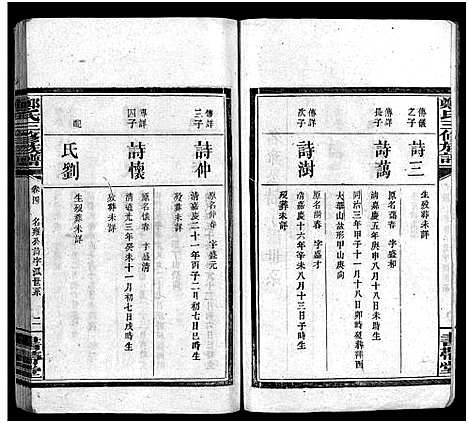 鄭氏三修族譜
書帶堂
傳儀之子
詩三
生歿葬未詳
傳詳長子
詩萬
原名萬春 字盛和
清嘉慶五年庚申八月十八日
同治三年甲子十一月十八日卯時歿葬祥西
大壩山站形甲山庚向
次子
詩澍
原名澍春 字盛才
清嘉慶十六年辛未八月十三日子時生
歿葬未詳
傳詳三子
詩仲
原名仲春 字盛元
清嘉慶二十一年丙子二月初七日巳時生
歿葬未詳
專詳四子
詩懷
原名懷春 字盛清
清道光三年癸未十一月初七日戌時生
歿葬未詳
配
氏劉
生歿葬未詳
鄭氏三修族譜
卷四
書帶堂